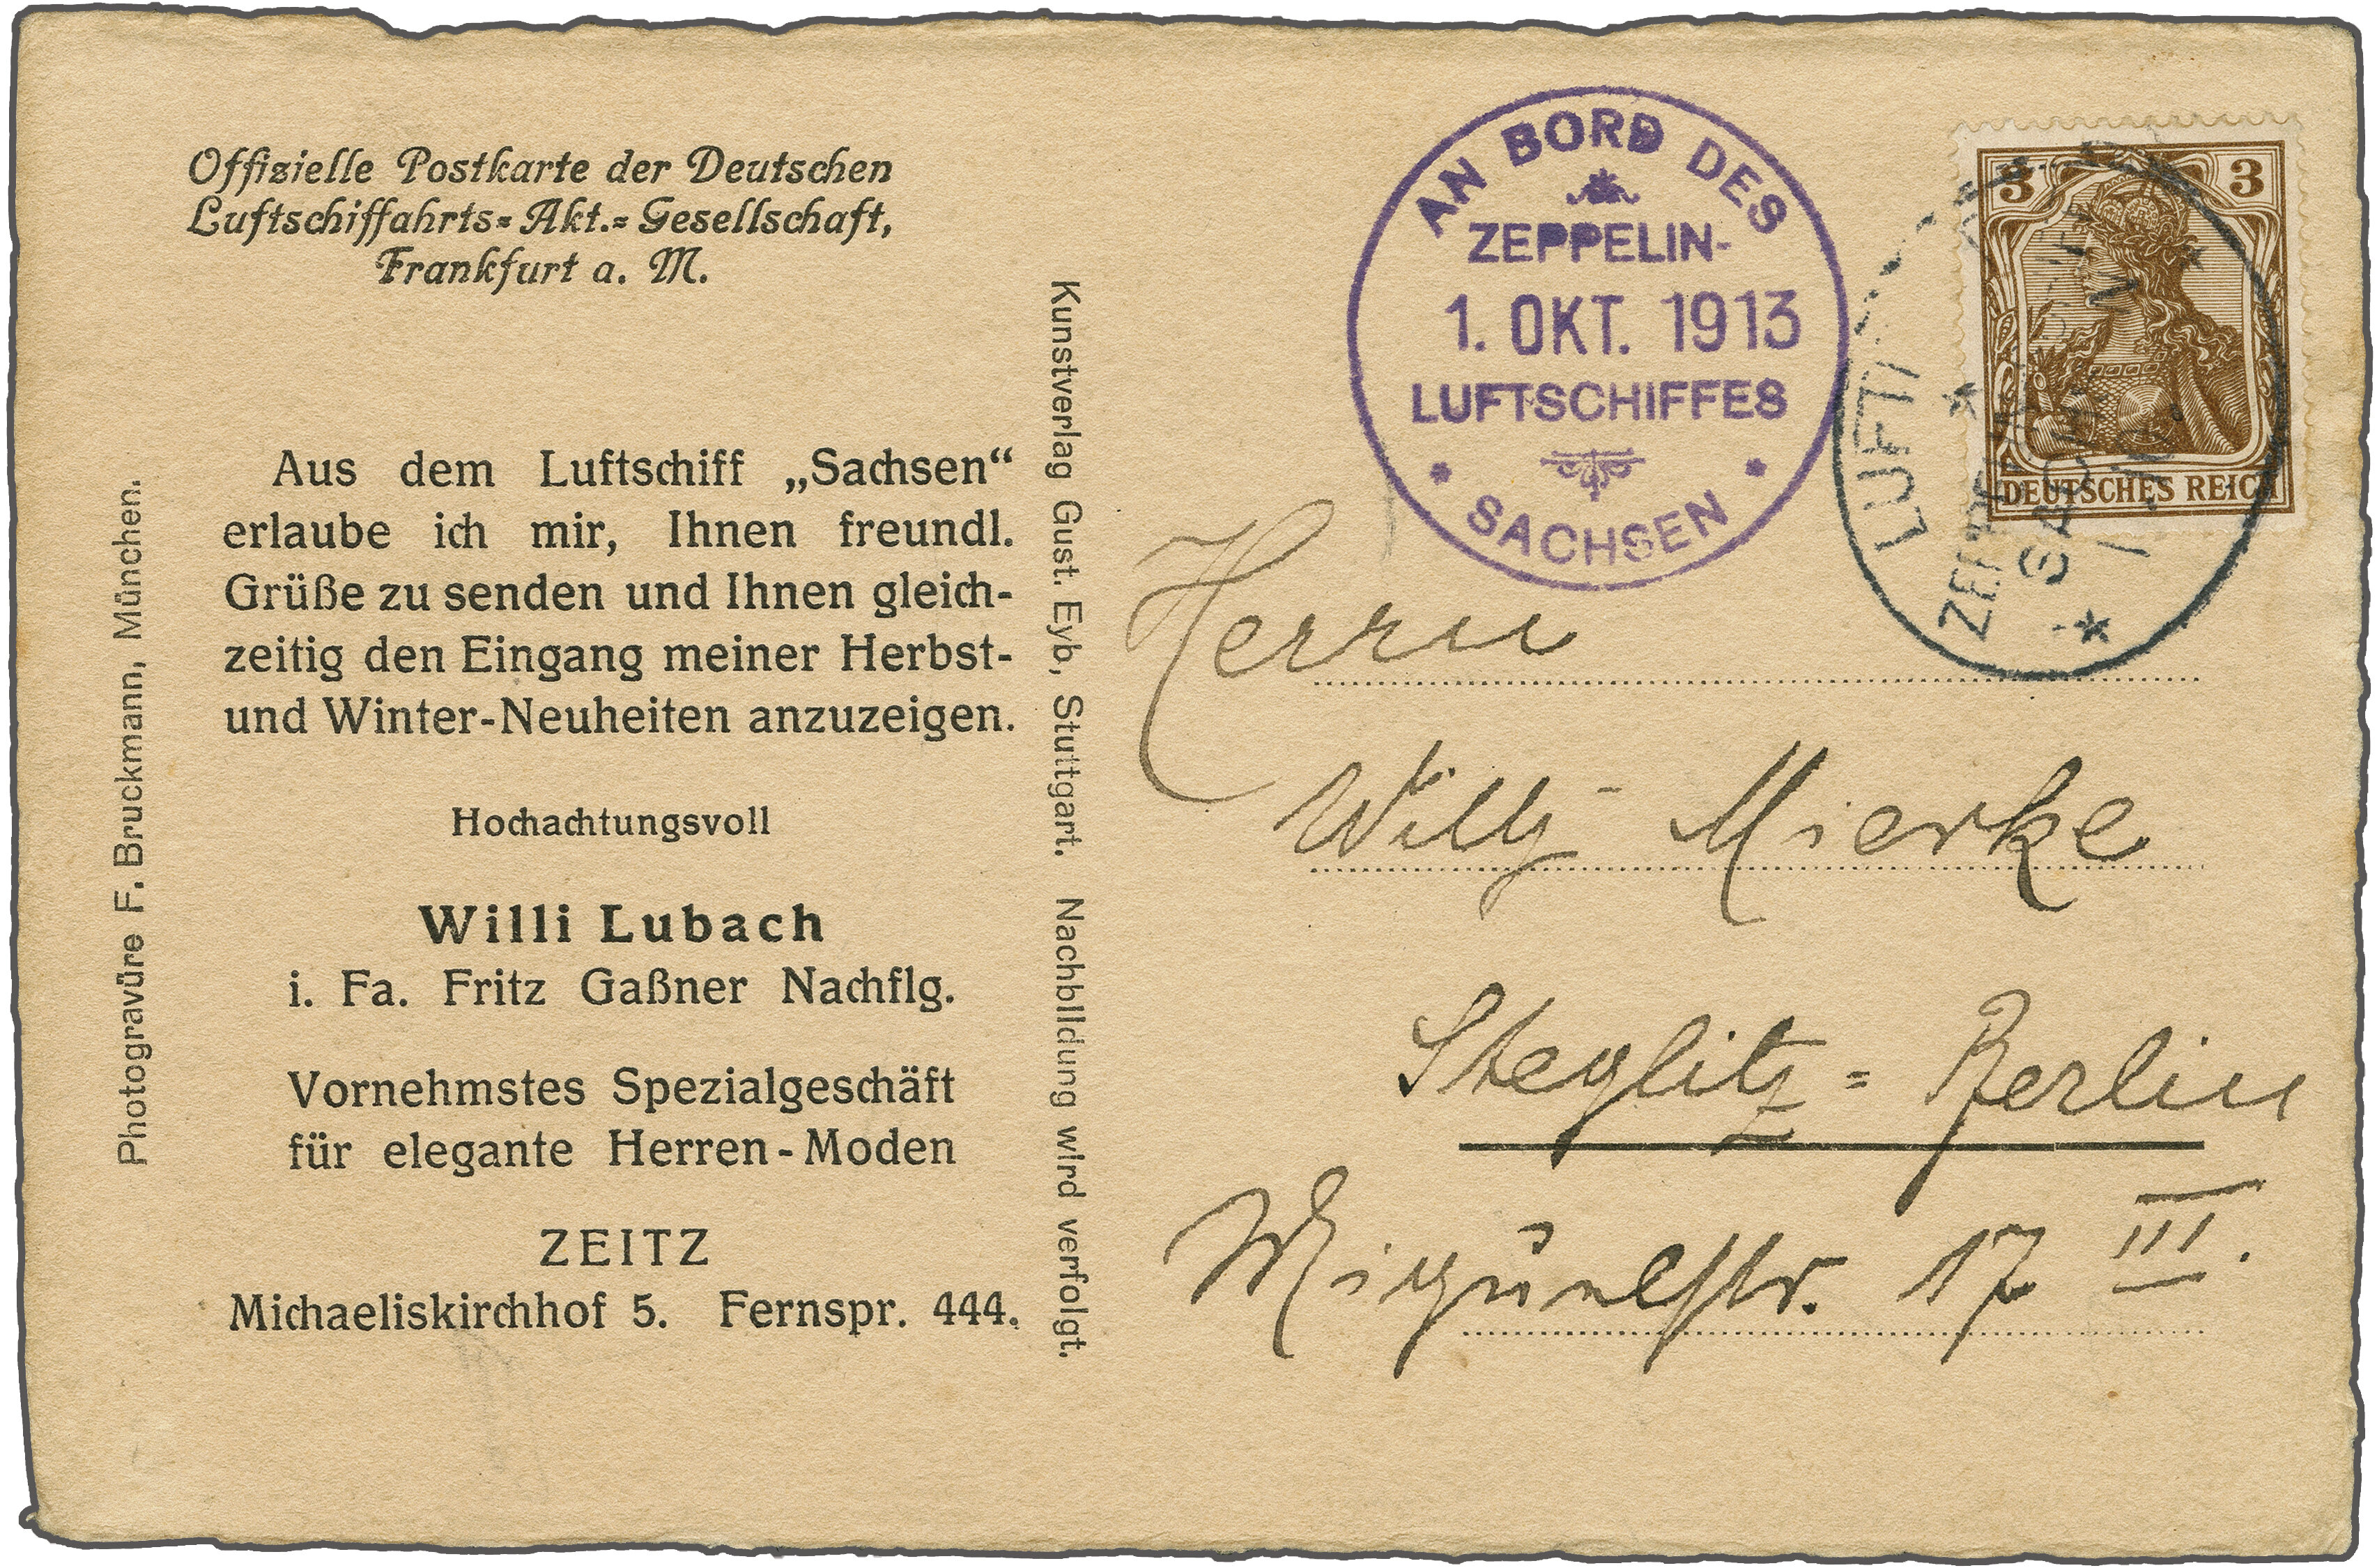 Offizielle Postkarte der Deutschen
Luftschiffahrts-Akt.-Gesellschaft,
Frankfurt a. M.
Photogravüre F. Bruckmann, München.
Aus dem Luftschiff „Sachsen“
erlaube ich mir, Ihnen freundl.
Grüße zu senden und Ihnen gleich-
zeitig den Eingang meiner Herbst-
und Winter-Neuheiten anzuzeigen.
Hochachtungsvoll
Willi Lubach
i. Fa. Fritz Gaßner Nachflg.
Vornehmstes Spezialgeschäft
für elegante Herren-Moden
ZEITZ
Michaeliskirchhof 5. Fernspr. 444.
Kunstverlag Gust. Eyb, Stuttgart. Nachbildung wird verfolgt.
AN BORD DES
ZEPPELIN-
1. OKT. 1913
LUFTSCHIFFES
SACHSEN
3 3
DEUTSCHES REICH
LUFT
Herrn
Willy Mierke
Steglitz-Berlin
17 III.